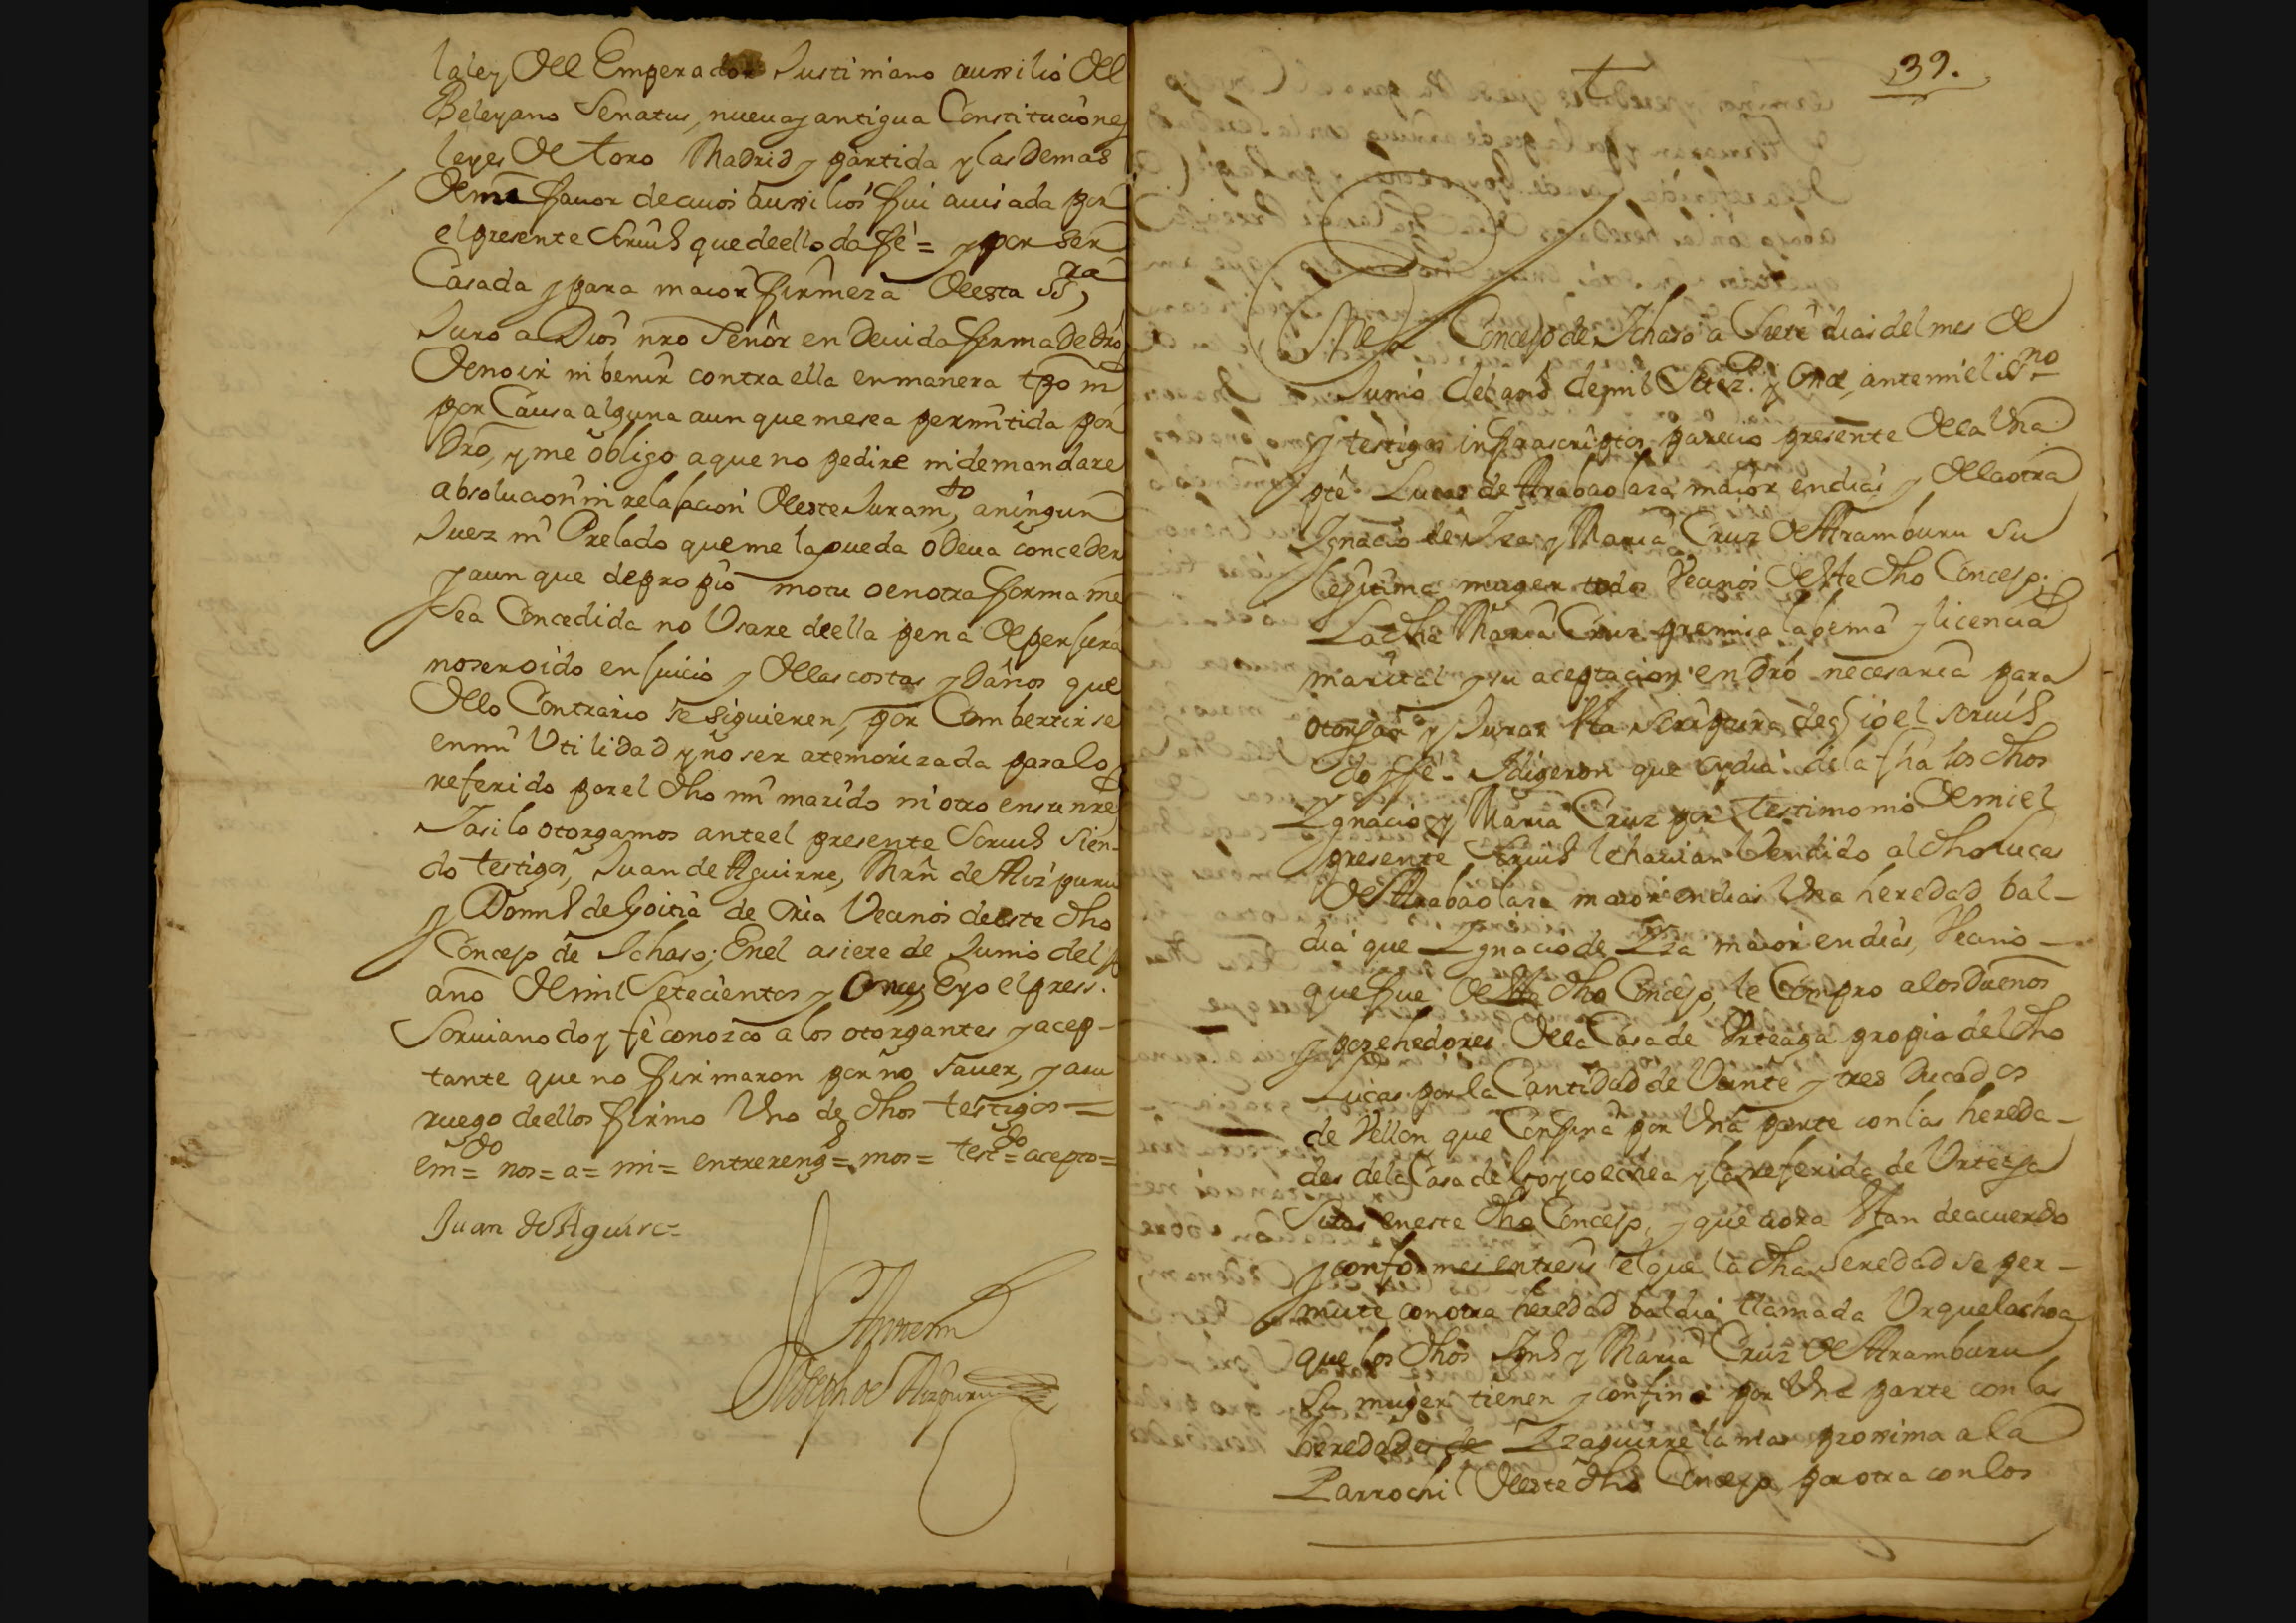 la ley Del Emperador Justiniano auxilio Del
Beleyano Senatus, nueua y antigua Constituciones
leyes De toro Madrid y partida y las Demas
De mi fauor de cuios auxilios fui auisada por
el presente scriuº que de ello da fe = y por ser
Casada y para maior firmeza De esta ssra,
Juro a Dios nro Señor en Deuida forma De Dro
De no ir ni benir contra ella en manera tpo ni
por Causa alguna aun que me sea permitida por
Dro, y me obligo a que no pedire ni demandare
absolucion ni relaxacion De este Juramto, a ningun
Juez ni Prelado que me la pueda o Deua conceder
y aun que de propio motu o en otra forma me
sea Concedida no Vsare de ella pena De perjura
no ser oido en juicio y De las costas y Daños que
De lo Contrario se siguieren, por Combertirse
en mi Vtilidad y no ser atemorizada para lo
referido por el dho mi marido ni otro en su nre
Y asi lo otorgamos ante el presente Scriuº sien-
do testigos, Juan de Aguirre, Mrn de Aizpuru
y Domº de Goitia de Oria Vecinos de este dho
Concejo de Ichaso; En el a siete de Junio del
año De mil Setecientos y Once, E yo el press.
Scriuano doy fe conozco a los otorgantes y acep-
tante que no firmaron por no sauer, y a su
ruego de ellos firmo Vno de dhos testigos =
emdo = nos = a = mi = entrereng = mos = testdo = acepto =
Juan de Aguirre
Ante mi
Joseph de Aizpuru
39.
En el Concejo de Ichaso a Siete dias del mes De
Junio del año de mil Setez.s y Once, ante mi el ssno
y testigos infraescriptos parecio presente De la Vna
pte Lucas de Arabaolaza maior en dias y De la otra
Ignacio de Iza y Maria Cruz De Aramburu su
legitima muger todos Vecinos De este dho Concejo;
La dha Maria Cruz premisa la benia y licencia
marital y su aceptacion en Dro necesaria para
otorgar y Jurar esta scriptura de q io el scriuº
doy fe. I digeron que oy dia de la fha los dhos
Ygnacio y Maria Cruz por Testimonio De mi el
presente scriuº le hauian Vendido al dho Lucas
De Arabaolaza maior en dias Vna heredad bal-
dia que Ygnacio de Iza maior en dias, Vecino
que fue De este dho Concejo, le Compro a los Dueños
y pozehedores De la Casa de Vrteaga propia del dho
Lucas por la Cantidad de Veinte y tres Ducados
de Vellon que Confina por Vna parte con las hereda-
des de la Casa de Goycoechea y la referida de Vrteaga
Sitas en este dho Concejo, y que aora Estan de acuerdo
y conformes entre si el que la dha heredad se per-
mute con otra heredad baldia llamada Vrquelachoa
que los dhos Ignº y Maria Cruz De Aramburu
su muger tienen y confina por Vna parte con las
heredades de Izaguirre la mas proxima a la
Parrochil De este dho Concejo, por otra con los